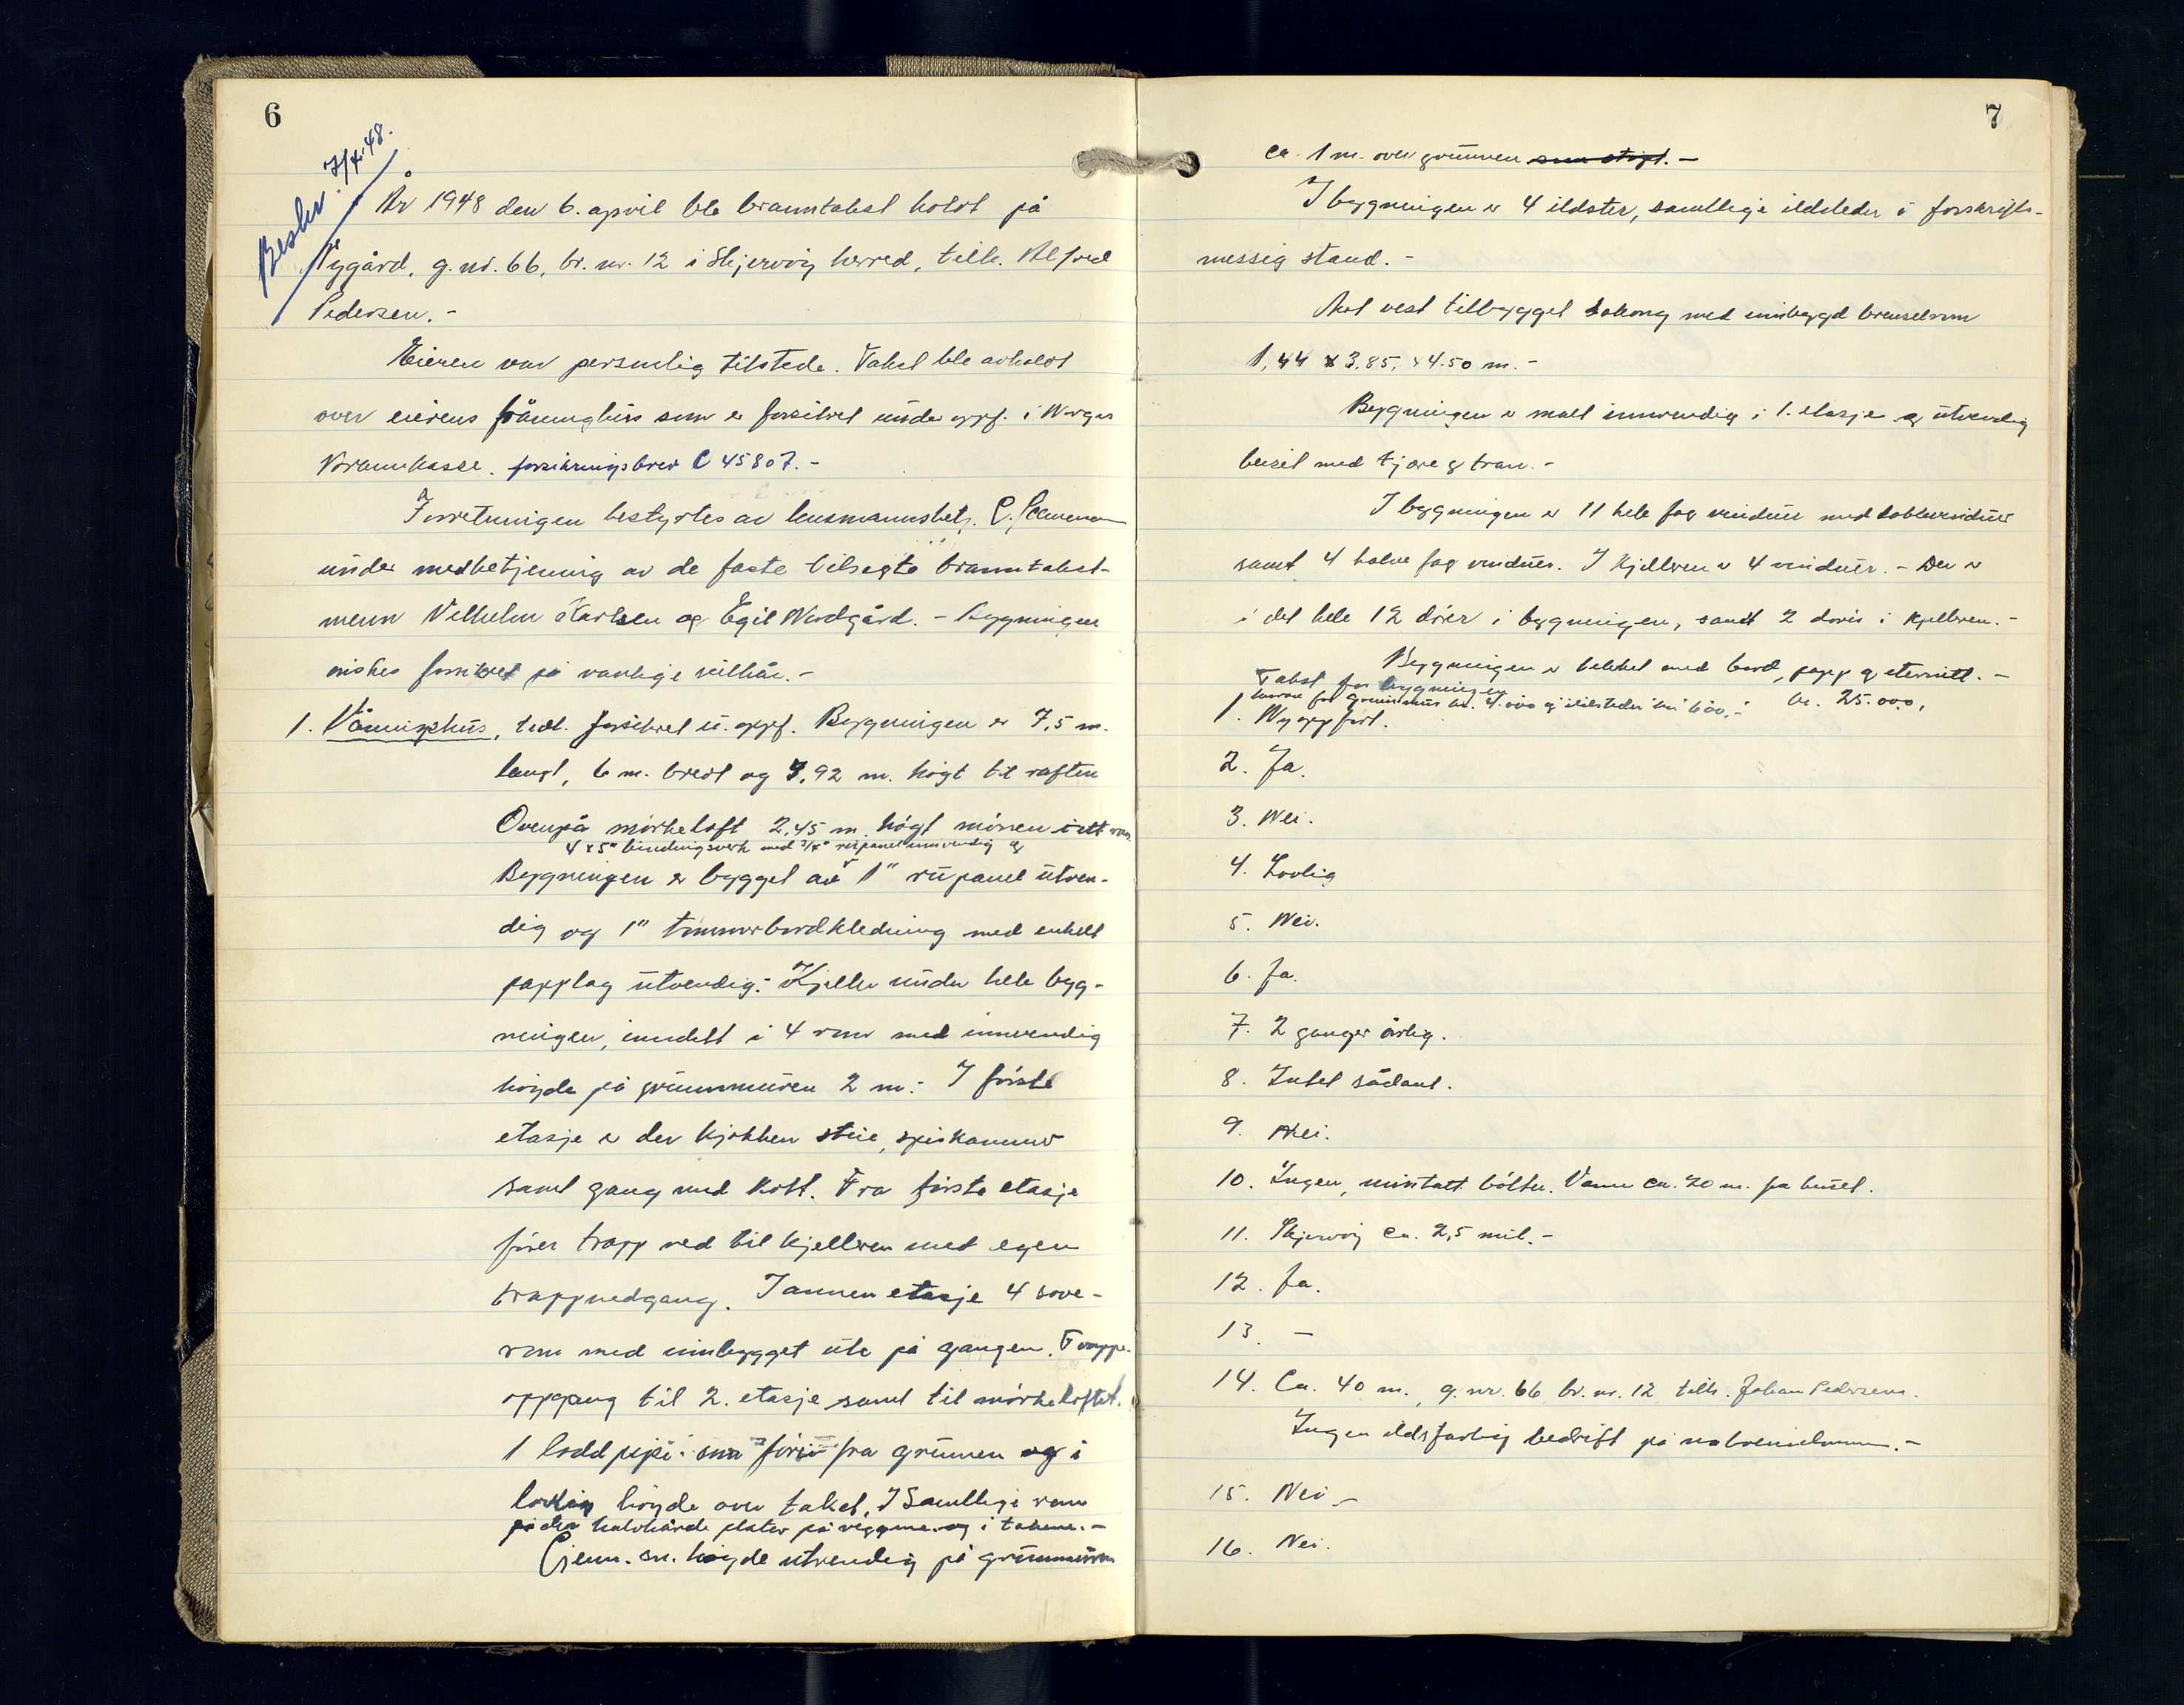 6
Beskr. 7/4.48.
År 1948 den 6. april ble branntakst holdt på
Nygård, g.nr. 66, br. nr. 12 i Skjervøy herred, tilh. Alfred
Pedersen. -
Eieren var personlig tilstede. Takst ble avholdt
over eierens våningshus som er forsikret under oppf. i Norges
Brannkasse. forsikringsbrev C 45807. -
Forretningen bestyrtes av lensmannsbetj.
under medbetjening av de faste tilsagte branntakst-
menn Vilhelm Karlsen og Egil Nordgård. - Bygningen
ønskes forsikret på vanlige vilkår. -
1. Våningshus, tidl. forsikret u. oppf. Bygningen er 7,5 m.
langt, 6 m. bredt og 4,92 m. høgt til raften
Ovenpå mørkeloft 2,45 m. høgt mønen i ett rom.
4 x 5" bindingsverk med 3/4" rupanel innvendig og
Bygningen er bygget av 1" rupanel utven-
dig og 1" tømmerbordkledning med enkelt
papplag utvendig. - Kjeller under hele byg-
ningen, inndelt i 4 rom med innvendig
høyde på grunnmuren 2 m. - I første
etasje er der kjøkken stue, spiskammer
samt gang med kott. Fra første etasje
fører trapp ned til kjelleren med egen
trappnedgang. I annen etasje 4 sove-
rom med innbygget ute på gangen. Trappe-
oppgang til 2. etasje samt til mørkeloftet.
1 loddpipe som fører fra grunnen og i
lovlig høyde over taket. I Samtlige rom
er der halvhårde plater på veggene og i takene. -
Gjenn. sn. høyde utvendig på grunnmuren
7
ca. 1 m. over grunnen som stigt. -
I bygningen er 4 ildster, samtlige ildsteder i forskrifts-
messig stand. -
Mot vest tilbygget bakong med innbygd brenselrom
1,44 x 3,85, x 4.50 m. -
Bygningen er malt innvendig i 1. etasje og utvendig
beiset med tjære og tran. -
I bygningen er 11 hele fag vinduer med dobbervinduer
samt 4 halve fag vinduer. I kjelleren er 4 vinduer. - Der er
i det hele 12 dører i bygningen, samt 2 dører i kjelleren. -
Bygningen er tekket med bord, papp og eternitt. -
Takst for bygningen kr. 25.000,
hvorav for grunnmur kr. 4.000 og ildsteder kr. 600,-
1. Ny oppført.
2. Ja.
3. Nei.
4. Lovlig
5. Nei.
6. Ja.
7. 2 ganger årlig.
8. Intet sådant.
9. Nei.
10. Ingen, unntatt bøtter. Vann ca. 20 m. fra huset.
11. Skjervøy ca. 2,5 mil. -
12. Ja.
13. -
14. Ca. 40 m., g.nr. 66 br. nr. 12 tilh. Johan Pedersen.
Ingen ildsfarlig bedrift på naboeiendommen. -
15. Nei -
16. Nei.